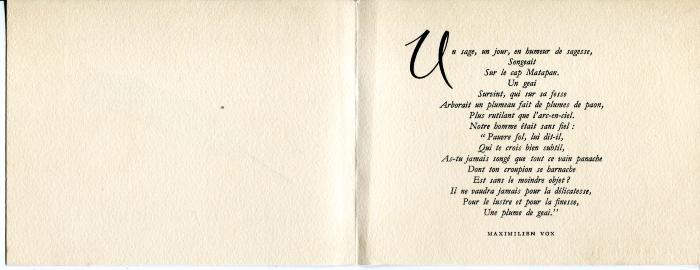 Un sage, un jour, en humeur de sagesse,
Songeait
Sur le cap Matapan.
Un geai
Survint, qui sur sa fesse
Arborait un plumeau fait de plumes de paon,
Plus rutilant que l'arc-en-ciel.
Notre homme était sans fiel :
“ Pauvre fol, lui dit-il,
Qui te crois bien subtil,
As-tu jamais songé que tout ce vain panache
Dont ton croupion se harnache
Est sans le moindre objet ?
Il ne vaudra jamais pour la délicatesse,
Pour le lustre et pour la finesse,
Une plume de geai.”
MAXIMILIEN VOX